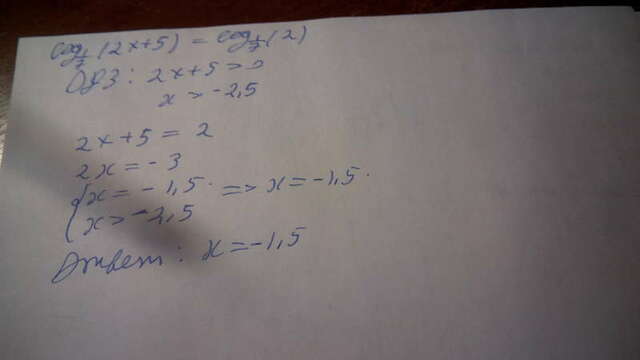 log 1/7 (2x+5) = log 1/7 (2)
ОДЗ: 2x+5>0
x > -2,5
2x+5 = 2
2x = -3
{x = -1,5. => x = -1,5.
x > -2,5
Ответ: x = -1,5